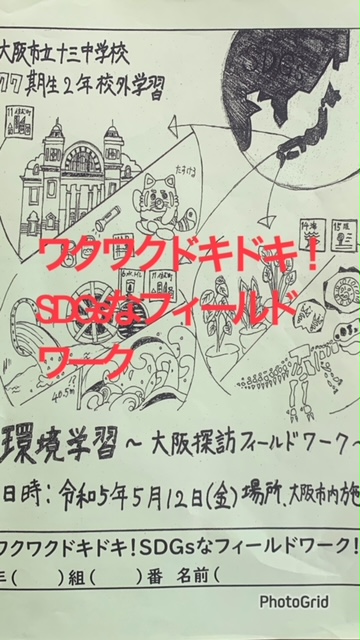 大阪市立十三中学校
77期生2年校外学習
SDGs
たすける
ワクワクドキドキ!
SDGsなフィールド
ワーク
40.5m
環境学習~大阪探訪フィールドワーク~
日時:令和5年5月12日(金)場所、大阪市内施
ワクワクドキドキ!SDGsなフィールドワーク!
年( )組( )番 名前(
PhotoGrid